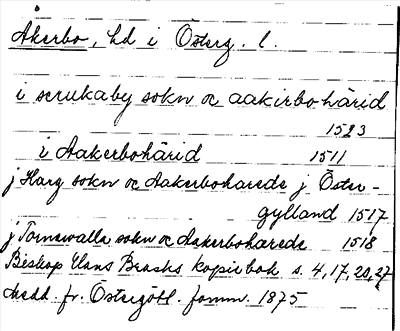 Åkerbo, hd i Österg. l.
i scrukaby sokn oc aakirbohärid
1523
i Aakerbohärid 1511
j Harg sokn oc Aakerboharede j Öster-
gylland 1517
j Tornewalla sokn oc Aakerboharede 1518
Biskop Hans Brasks kopiebok s. 4, 17, 20, 27
Medd. fr. Östergötl. fornm. 1875